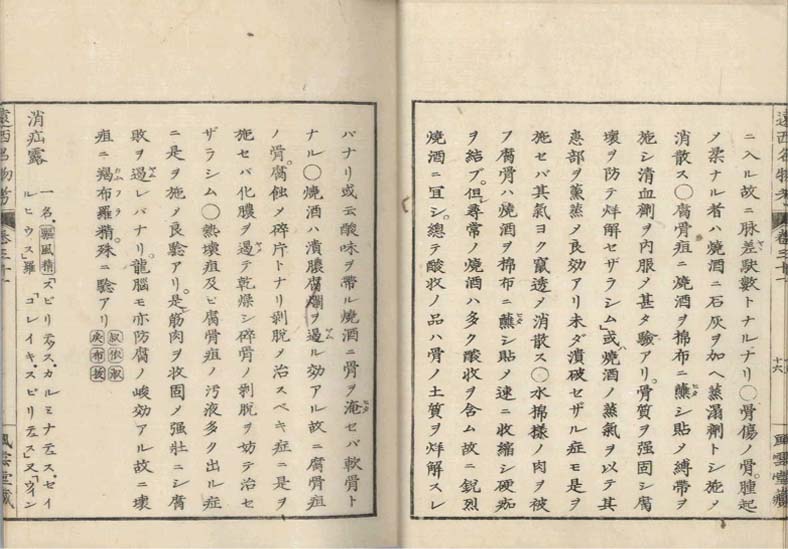 ニ入ル故ニ脉差駃數トナルナリ〇骨傷ノ骨腫起
ノ柔ナル者ハ燒酒ニ石灰ヲ加ヘ蒸溻劑トシ施メ
消散ス〇腐骨疽ニ燒酒ヲ棉布ニ蘸シ貼メ縛帶ヲ
施シ清血劑ヲ内服メ甚タ驗アリ骨質ヲ强固シ腐
壞ヲ防テ烊解セザラシム或燒酒ノ蒸氣ヲ以テ其
患部ヲ薰蒸メ良効アリ未ダ潰破セザル症モ是ヲ
施セバ其氣ヨク竄透メ消散ス〇水棉樣ノ肉ヲ被
フ腐骨ハ燒酒ヲ棉布ニ蘸シ貼メ速ニ收縮シ硬痂
ヲ結ブ但尋常ノ燒酒ハ多ク酸收ヲ含ム故ニ鋭烈
燒酒ニ冝シ總テ酸收ノ品ハ骨ノ土質ヲ烊解スレ
遠西名物考
十六
風雲堂藏
バナリ或云酸味ヲ帶ル燒酒ニ骨ヲ淹セバ軟骨ト
ナル〇燒酒ハ潰膿腐爛ヲ遏ル効アル故ニ腐骨疽
ノ骨腐蝕メ碎片トナリ剥脱メ治スベキ症ニ是ヲ
施セバ化膿ヲ遏テ乾燥シ碎骨ノ剥脱ヲ妨テ治セ
ザラシム〇熱壞疽及ビ腐骨疽ノ汚液多ク出ル症
ニ是ヲ施メ良驗アリ是筋肉ヲ收固メ强壯ニシ腐
敗ヲ遏レバナリ龍腦モ亦防腐ノ峻効アル故ニ壞
疽ニ羯布羅精殊ニ驗アリ
消疝露 一名驅風精スピリテュス、カルミナテュス、セイ
ルヒウス羅「コレイキ、スピリテュス」又「ウィン
遠西名物考
風雲堂藏